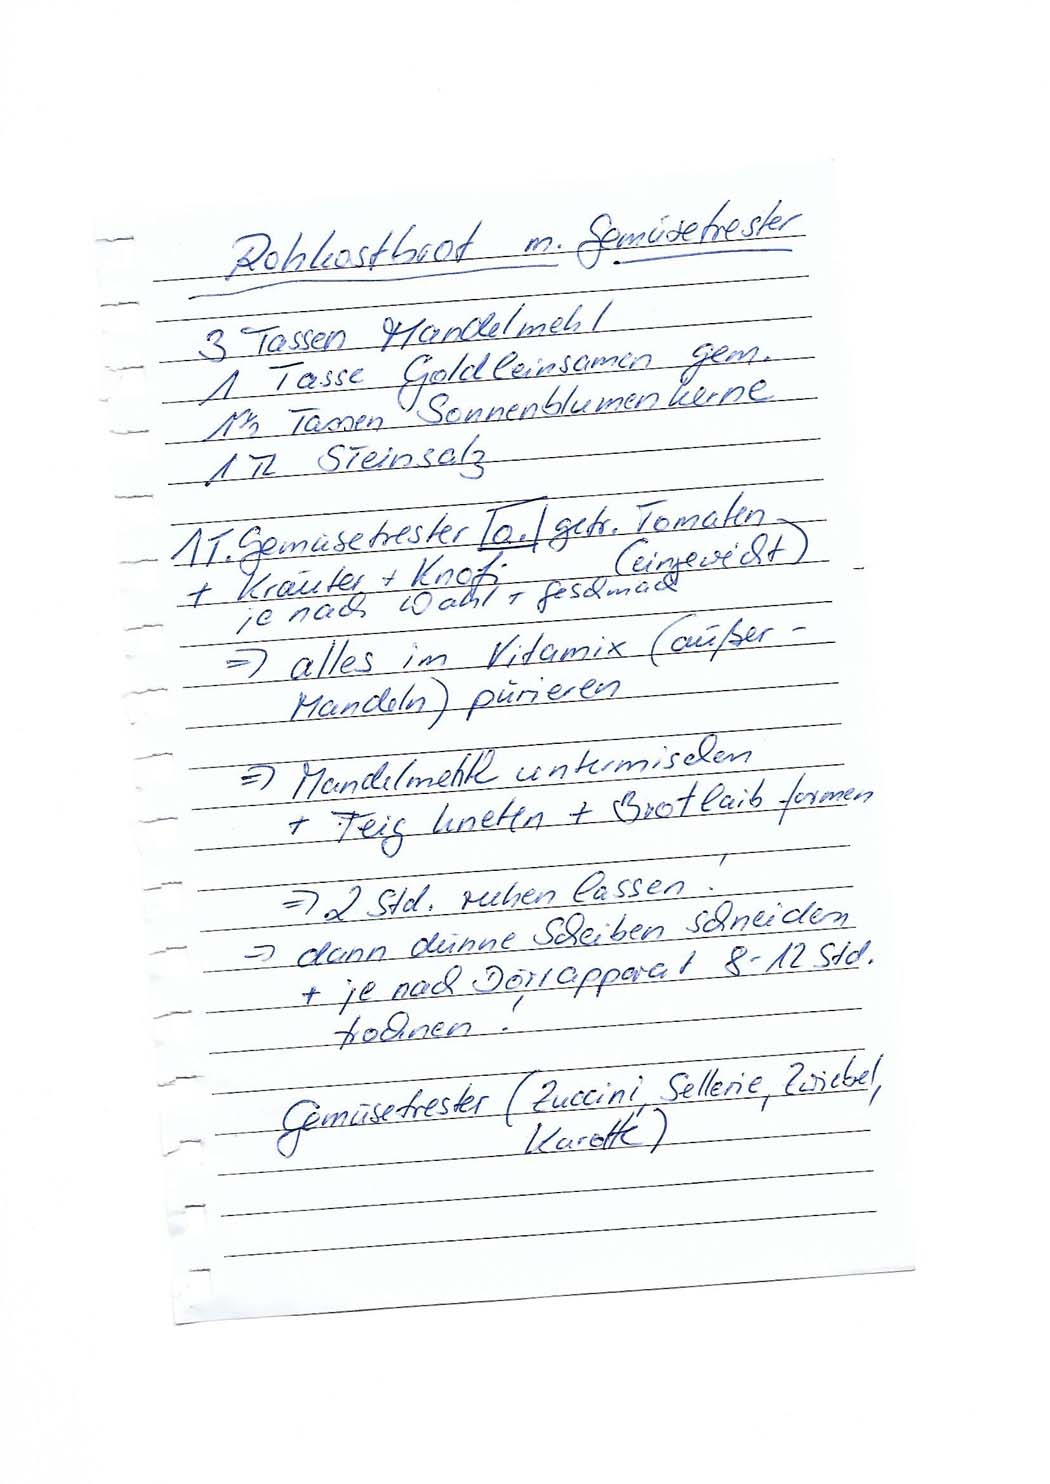 Rohkostbrot m. Gemüsetrester
3 Tassen Mandelmehl
1 Tasse Goldleinsamen gem.
1½ Tassen Sonnenblumenkerne
1 TL Steinsalz
1 T. Gemüsetrester o. getr. Tomaten
+ Kräuter + Knofi (eingeweicht)
je nach Wahl + Geschmack
=> alles im Vitamix (außer -
Mandeln) pürieren
=> Mandelmehl untermischen
+ Teig kneten + Brotlaib formen
=> 2 Std. ruhen lassen!
=> dann dünne Scheiben schneiden
+ je nach Dörrapparat 8-12 Std.
trocknen!
Gemüsetrester (Zuccini, Sellerie, Zwiebel,
Karotte)